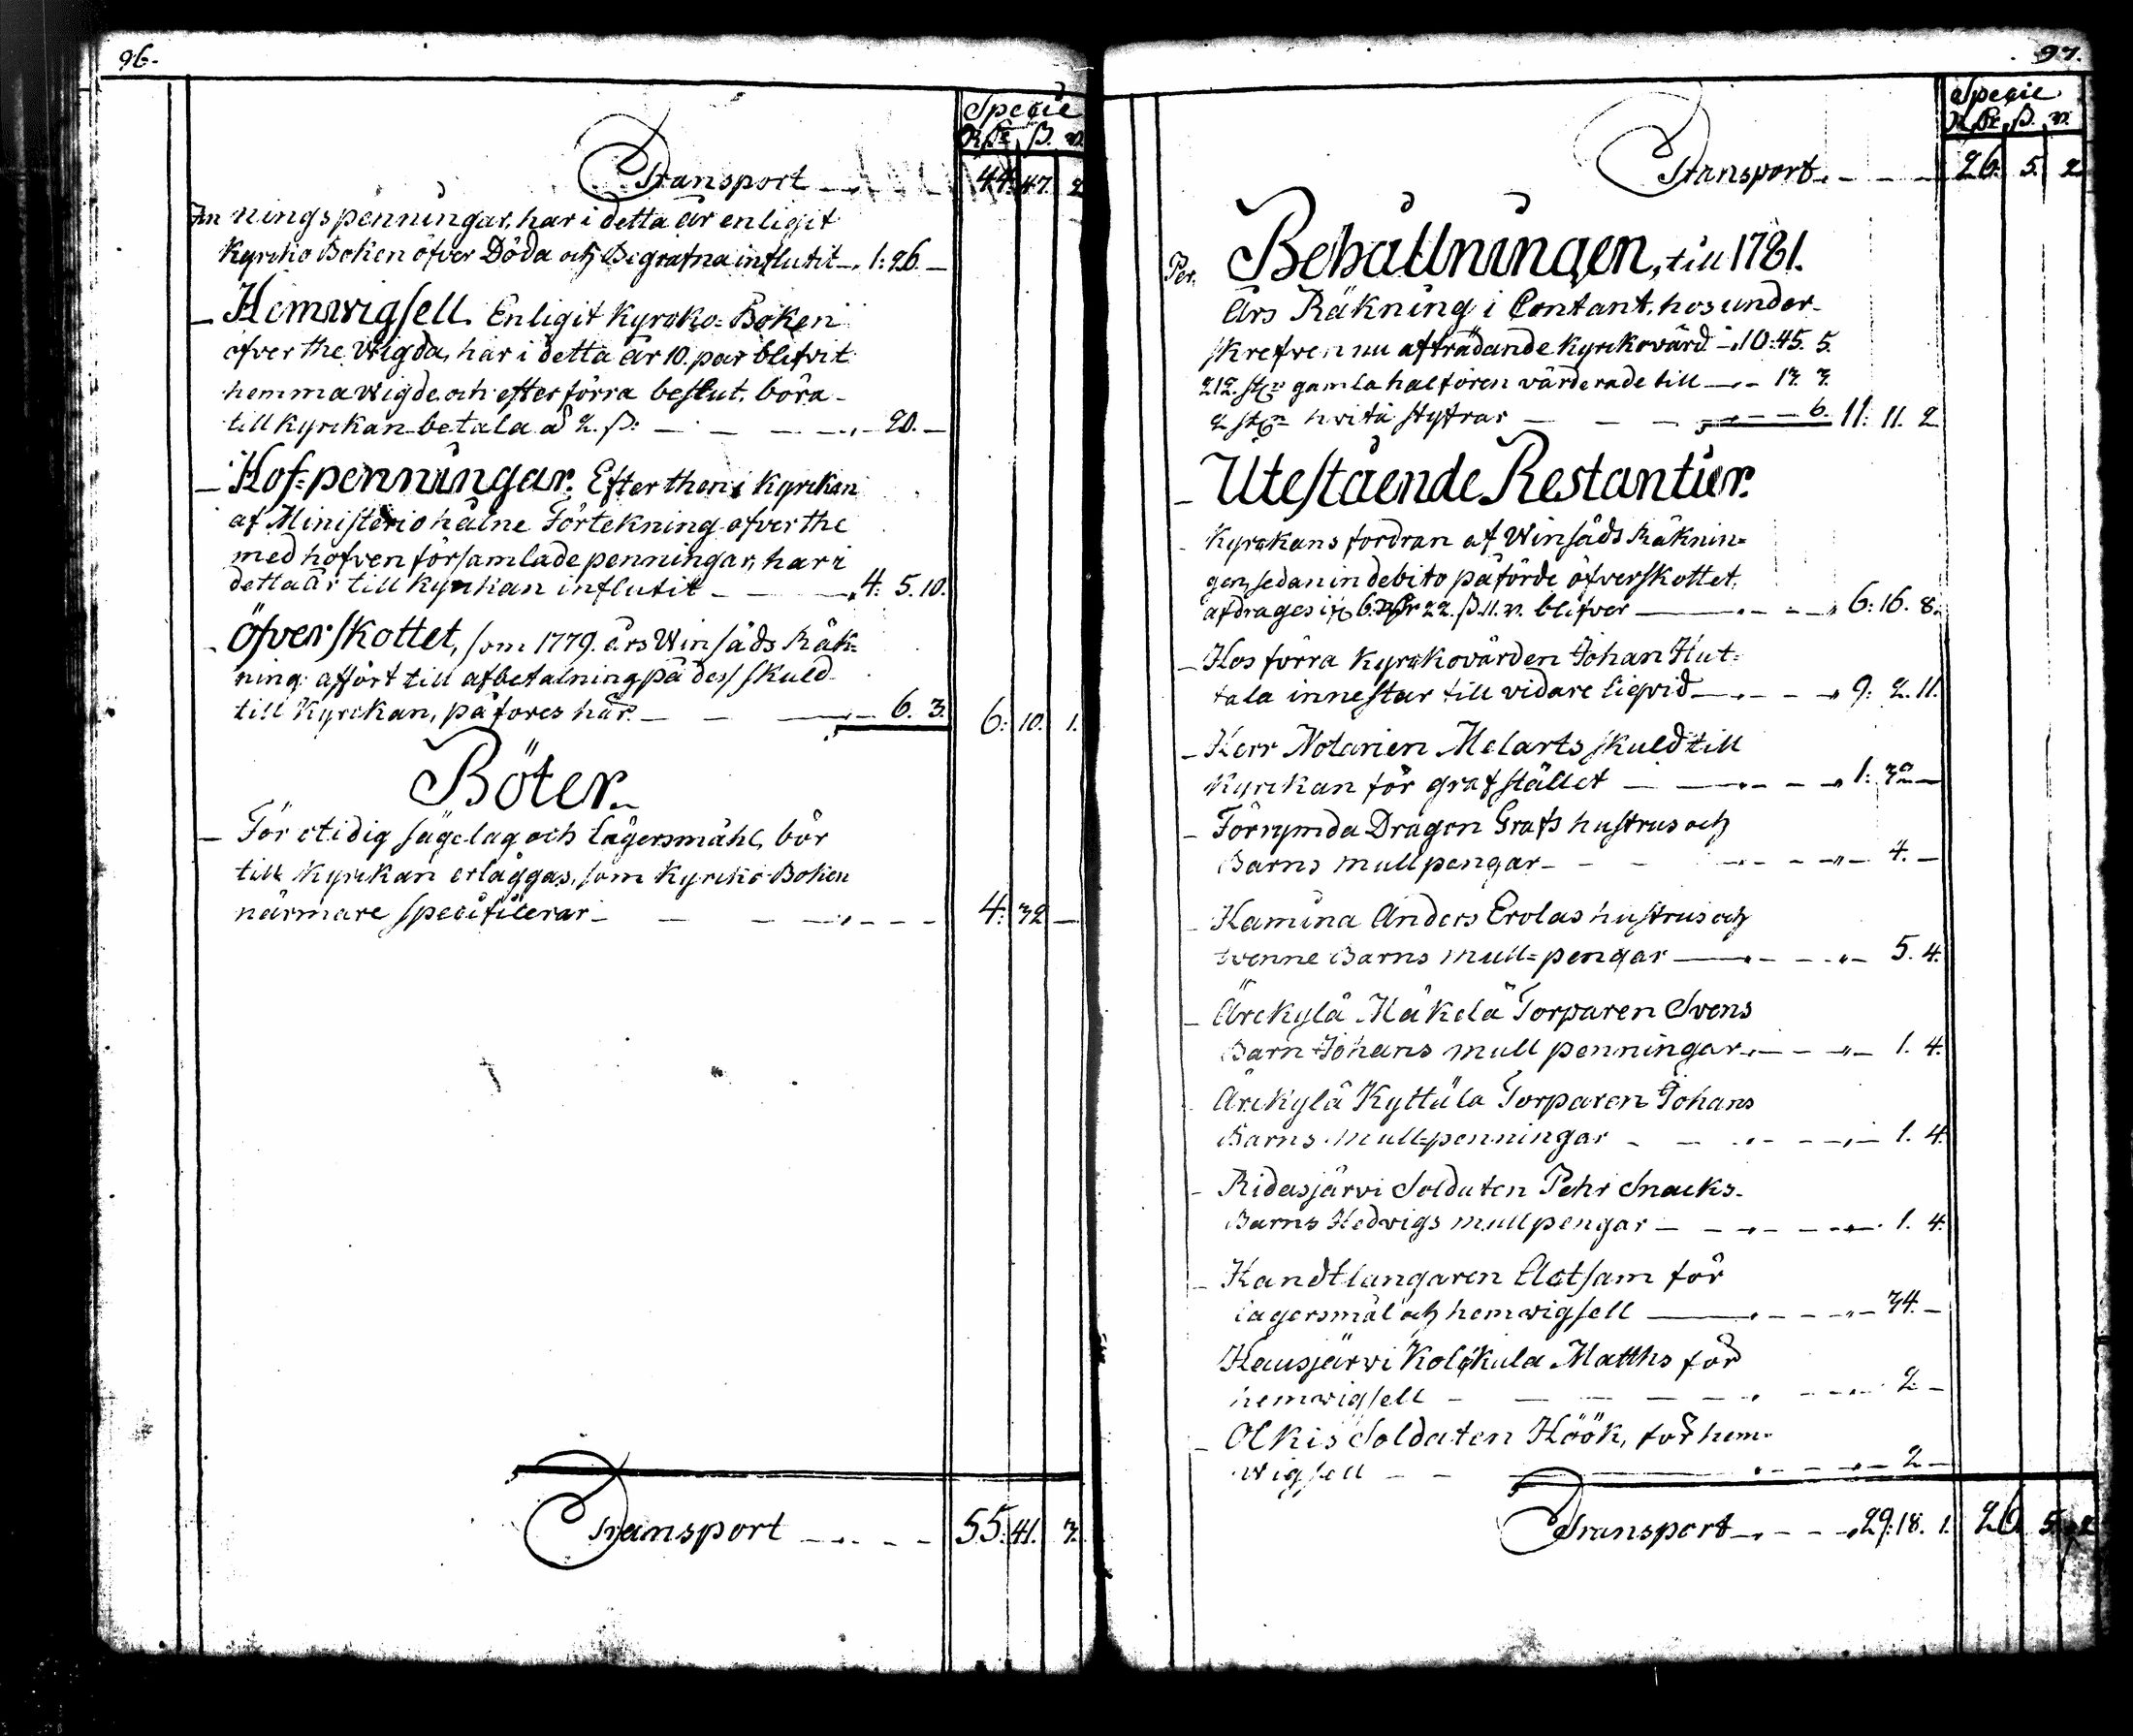 96.
Specie
RDr ß. rs.
Transport 44: 47. 2
An ningspenningar, har i detta år enligit
Kyrcko Boken öfver Döda och Begrafna influtit 1: 26. —
— Hemwigsell. Enligit Kyrcko-Boken
öfver the Wigda, har i detta år 10. par blifvit
hemma wigde och efter förra beslut. böra
till Kyrckan betala à 2. ß. 20. —
— Hof-penningar. Efter then i Kyrckan
af Ministerio hålne Förtekning öfver the
med hofven församlade penningar, har i
detta år till Kyrckan influtit 4: 5. 10.
Öfverskottet, som 1779. års Winsåds Räk-
ning affört till afbetalning på dess skuld
till Kyrckan, påföres här. 6. 3. 6: 10. 1.
Böter.
— För otidig sägelag och lägersmåhl, bör
till Kyrckan erläggas, som Kyrcko-Boken
närmare specificerar 4: 32 —
Transport 55: 41. 3.
97.
Specie
RDr ß. rs.
Transport 26. 5. 2
Per. Behållningen, till 1781.
års Räkning i Contant, hos under-
skrefven nu afträdande Kyrckovärd 10: 45. 5.
212. st. gamla halfören värderade till 13. 3.
2 st. hvita styfrar 6. 11: 11. 2
— Utestående Restantier.
Kyrckans fordran af Winsåds Räknin-
gen, sedan in debito påförde öfverskottet
afdrages ifr. 6. RDr 22. ß. 11. rs. blifver 6: 16. 8.
— Hos förra Kyrckovärden Johan Hut-
tala innestår till vidare liqvid 9: 2. 11.
— Herr Notarien Melarts skuld till
Kyrckan för grafstället 1: 32 —
— Förrymda Dragon Grafs hustrus och
Barns mullpengar 4. —
— Kamina Anders Erolas hustrus och
tvenne Barns mull-pengar 5. 4.
— Arekylä Mäkelä Torparen Svens
Barn Johans mull penningar 1. 4.
Arekylä Kyttälä Torparen Johans
Barns mull-penningar 1. 4.
— Ridasjärvi Soldaten Pehr Snacks
Barns Hedvigs mullpengar 1. 4.
— Handtlangaren Eletsam för
lägersmål och hemwigsell 34. —
Hausjärvi Kolckula Matths för
hemwigsell 2. —
— Olkis Soldaten Höök, för hem-
wigsell 2 —
Transport 29: 18. 1. 26 5. 2